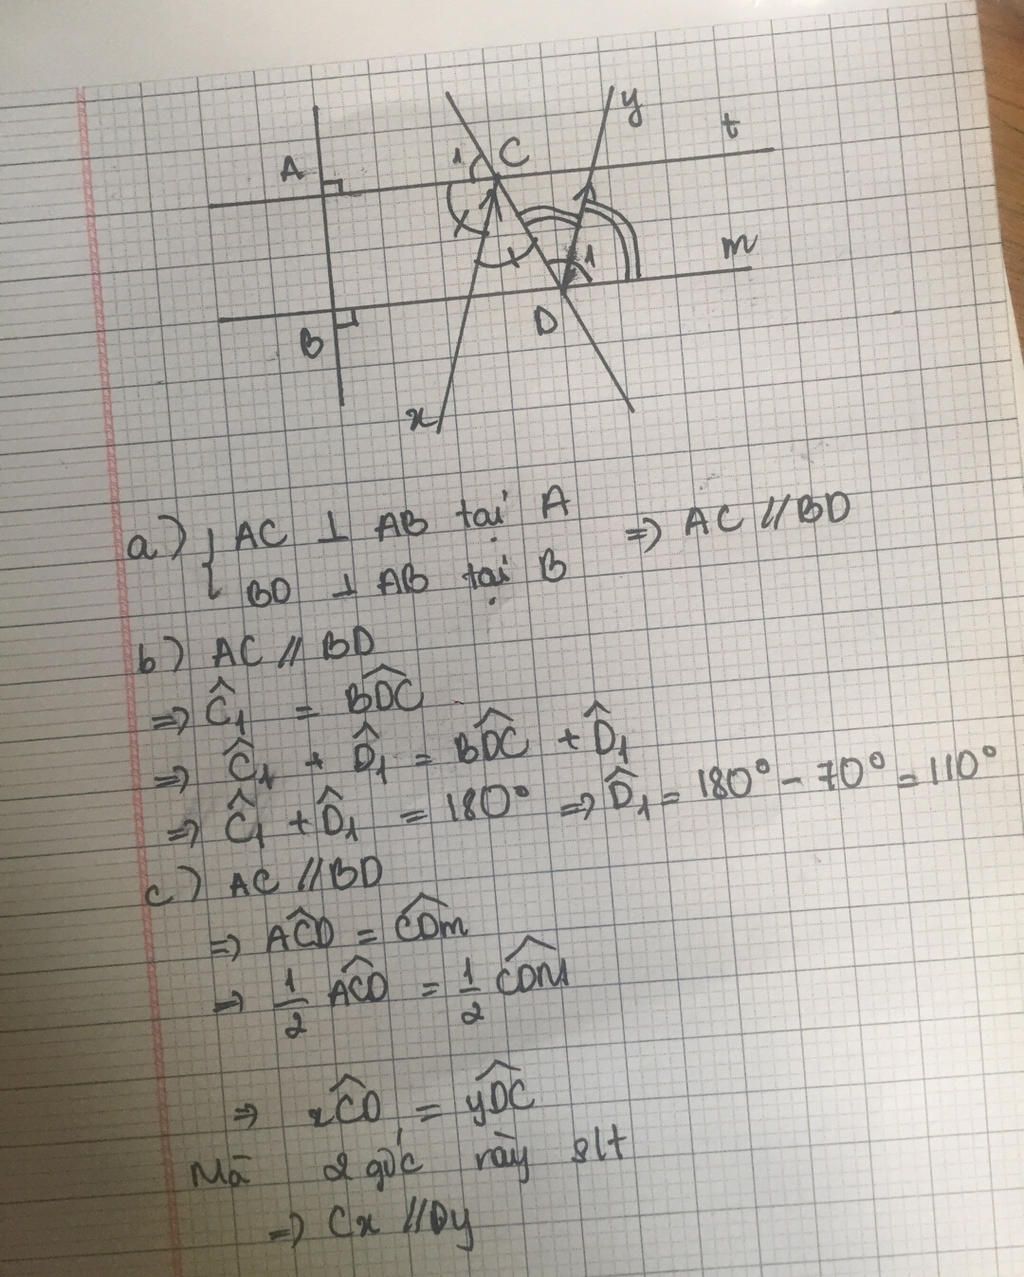 A
1
C
y
t
B
D
1
m
x
a) { AC ⊥ AB tại A
BD ⊥ AB tại B
=> AC // BD
b) AC // BD
=> Ĉ₁ = B̂DC
=> Ĉ₁ + D̂₁ = B̂DC + D̂₁
=> Ĉ₁ + D̂₁ = 180° => D̂₁ = 180° - 70° = 110°
c) AC // BD
=> ÂCD = ĈDm
=> 1/2 ÂCD = 1/2 ĈDm
=> x̂CD = ŷDC
Mà 2 góc này slt
=> Cx // Dy